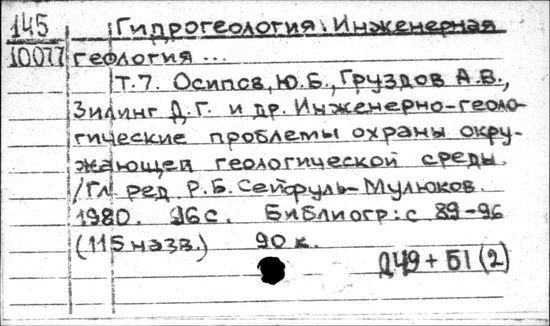 145 Гидрогеология. Инженерная
10077 геология ...
Т.7. Осипов, Ю.Б., Груздов А.В.,
Зилинг Д.Г. и др. Инженерно-геоло-
гические проблемы охраны окру-
жающей геологической среды.
/Гл ред Р.Б. Сейфуль-Мулюков.
1980. 96с. Библиогр: с 89-96
(115 назв.) 90 к.
Д49 + Б1 (2)